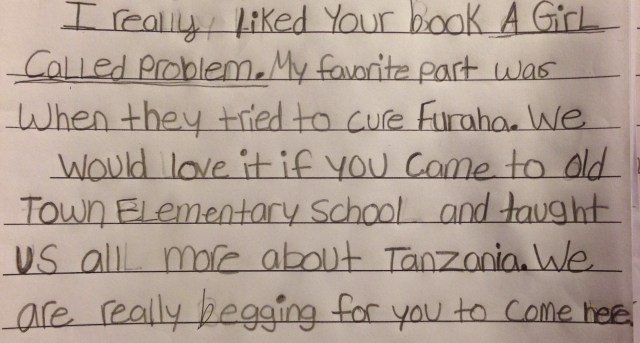 I really liked Your book A GirL
Called Problem. My favorite part was
When they tried to cure Furaha. We
Would love it if you Came to old
Town Elementary School and taught
us all more about Tanzania. We
are really begging for you to Come here.